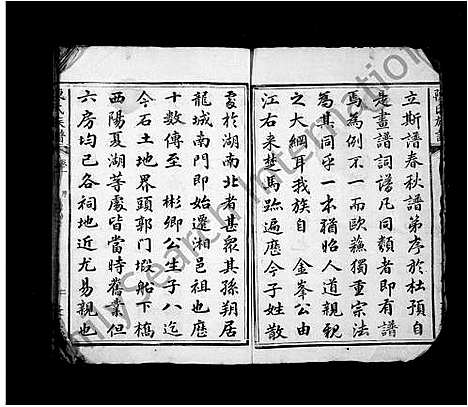 立斯譜春秋譜第孝於杜預自
是畫譜詞譜凡同類者即有譜
焉為例不一而歐蘇獨重宗法
為其同乎一本猶始人道親親
之大綱耳我族自　金峯公由
江右來楚馬跡遍歷今子姓散
處於湖南北者甚眾其孫朔居
龍城南門即始遷湘邑祖也歷
十數傳至　彬卿公生子八迄
今石土地界頭郭門塅船下橋
西陽夏湖等處皆當時舊業但
六房均已各祠地近尤易親也